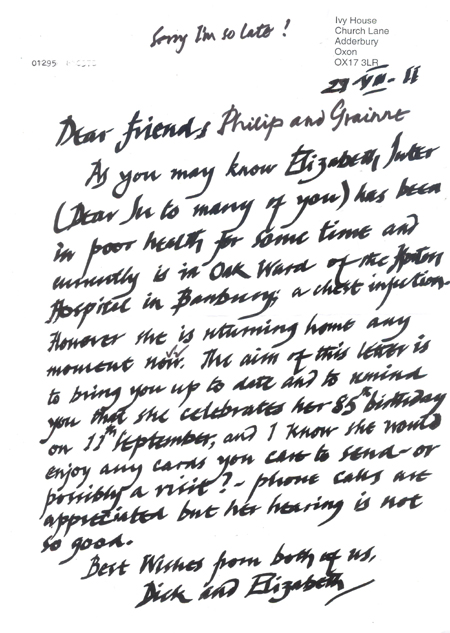 Sorry I'm so late!
Ivy House
Church Lane
Adderbury
Oxon
OX17 3LR
01295
29 VII - 11
Dear friends Philip and Grainne
As you may know Elizabeth,
(Dear Ju to many of you) has been
in poor health for some time and
currently is in Oak Ward of the Horton
Hospital in Banbury; a chest infection.
However she is returning home any
moment now. The aim of this letter is
to bring you up to date and to remind
you that she celebrates her 85th birthday
on 11th September, and I know she would
enjoy any cards you care to send - or
possibly a visit? - phone calls are
appreciated but her hearing is not
so good.
Best Wishes from both of us,
Dick and Elizabeth